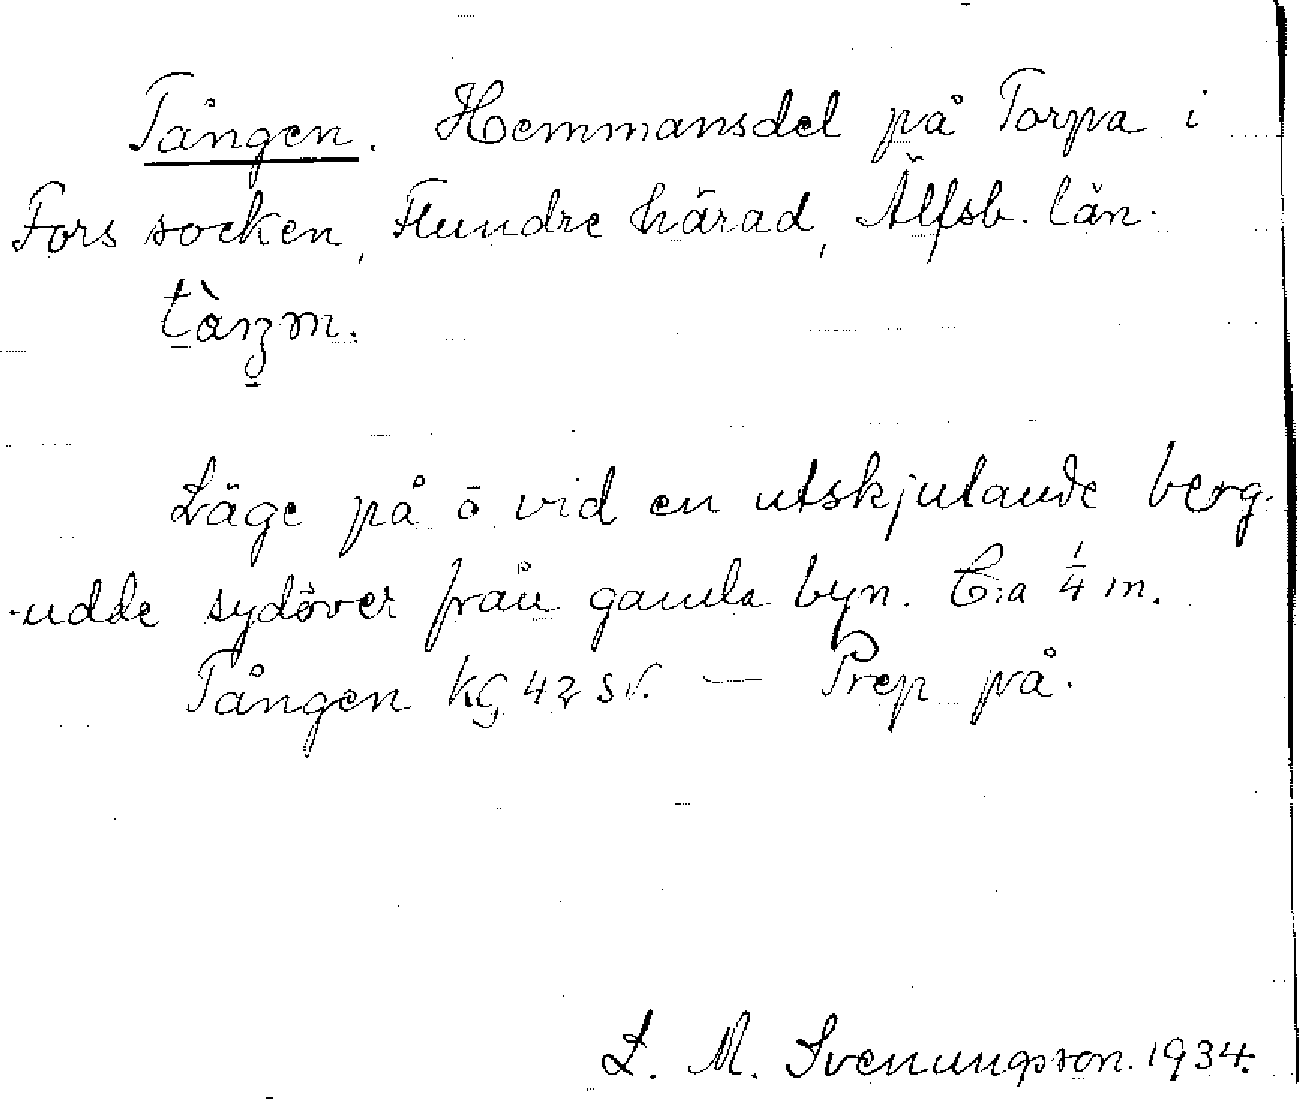 Tången. Hemmansdel på Torpa i
Fors socken, Flundre härad, Älfsb. län.
Läge på ö vid en utskjutande berg-
udde sydöver från gamla byn. C:a ¼ m.
Tången kg 42 sv. — Prep på.
L. M. Svenungsson. 1934.